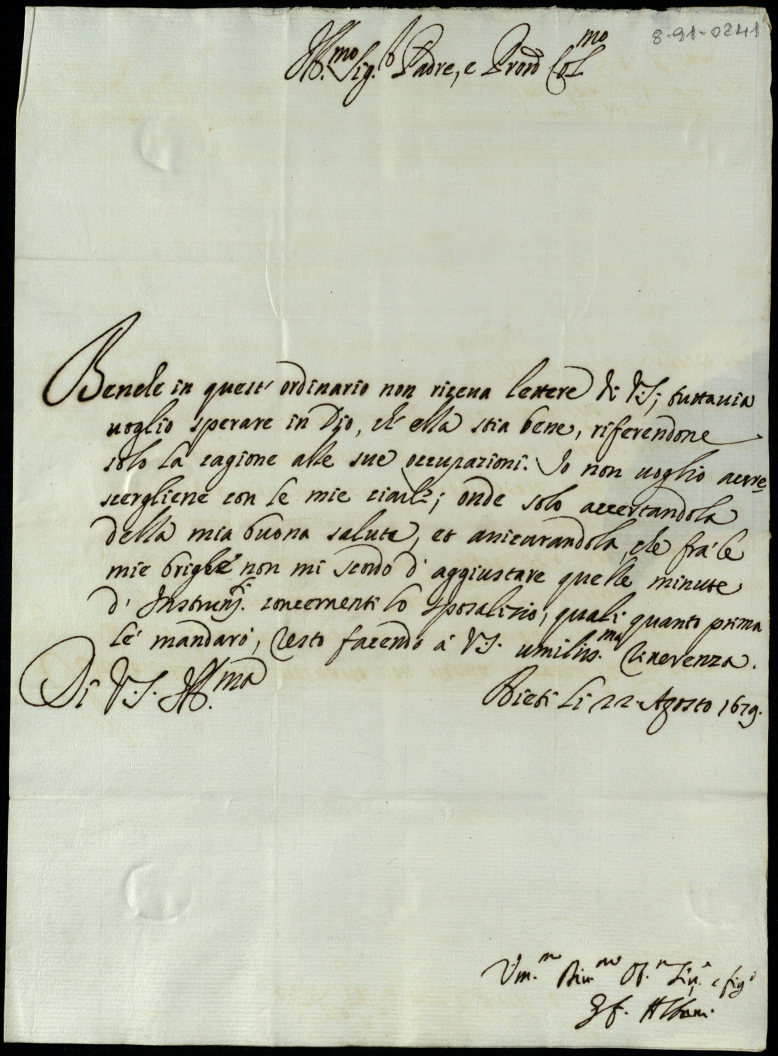 8-91-0241
Ill.mo Sig.r Padre, e Pron Col.mo
Benche in quest' ordinario non riceva lettere di V.S., tuttavia
voglio sperare in Dio, ch' ella stia bene, riferendone
solo la cagione alle sue occupazioni. Io non voglio accre=
scergliene con le mie ciarle; onde solo accertandola
della mia buona salute, et assicurandola, che fra le
mie brighe non mi scordo d' aggiustare quelle minute
d' Instrum.ti concernenti lo sposalizio, quali quanto prima
le mandarò, resto facendo à V.S. umiliss.ma riverenza.
Di V.S. Ill.ma
Rieti li 22 Agosto 1679.
Um.o Div.mo Ob. e fig.o
Gf. Albani